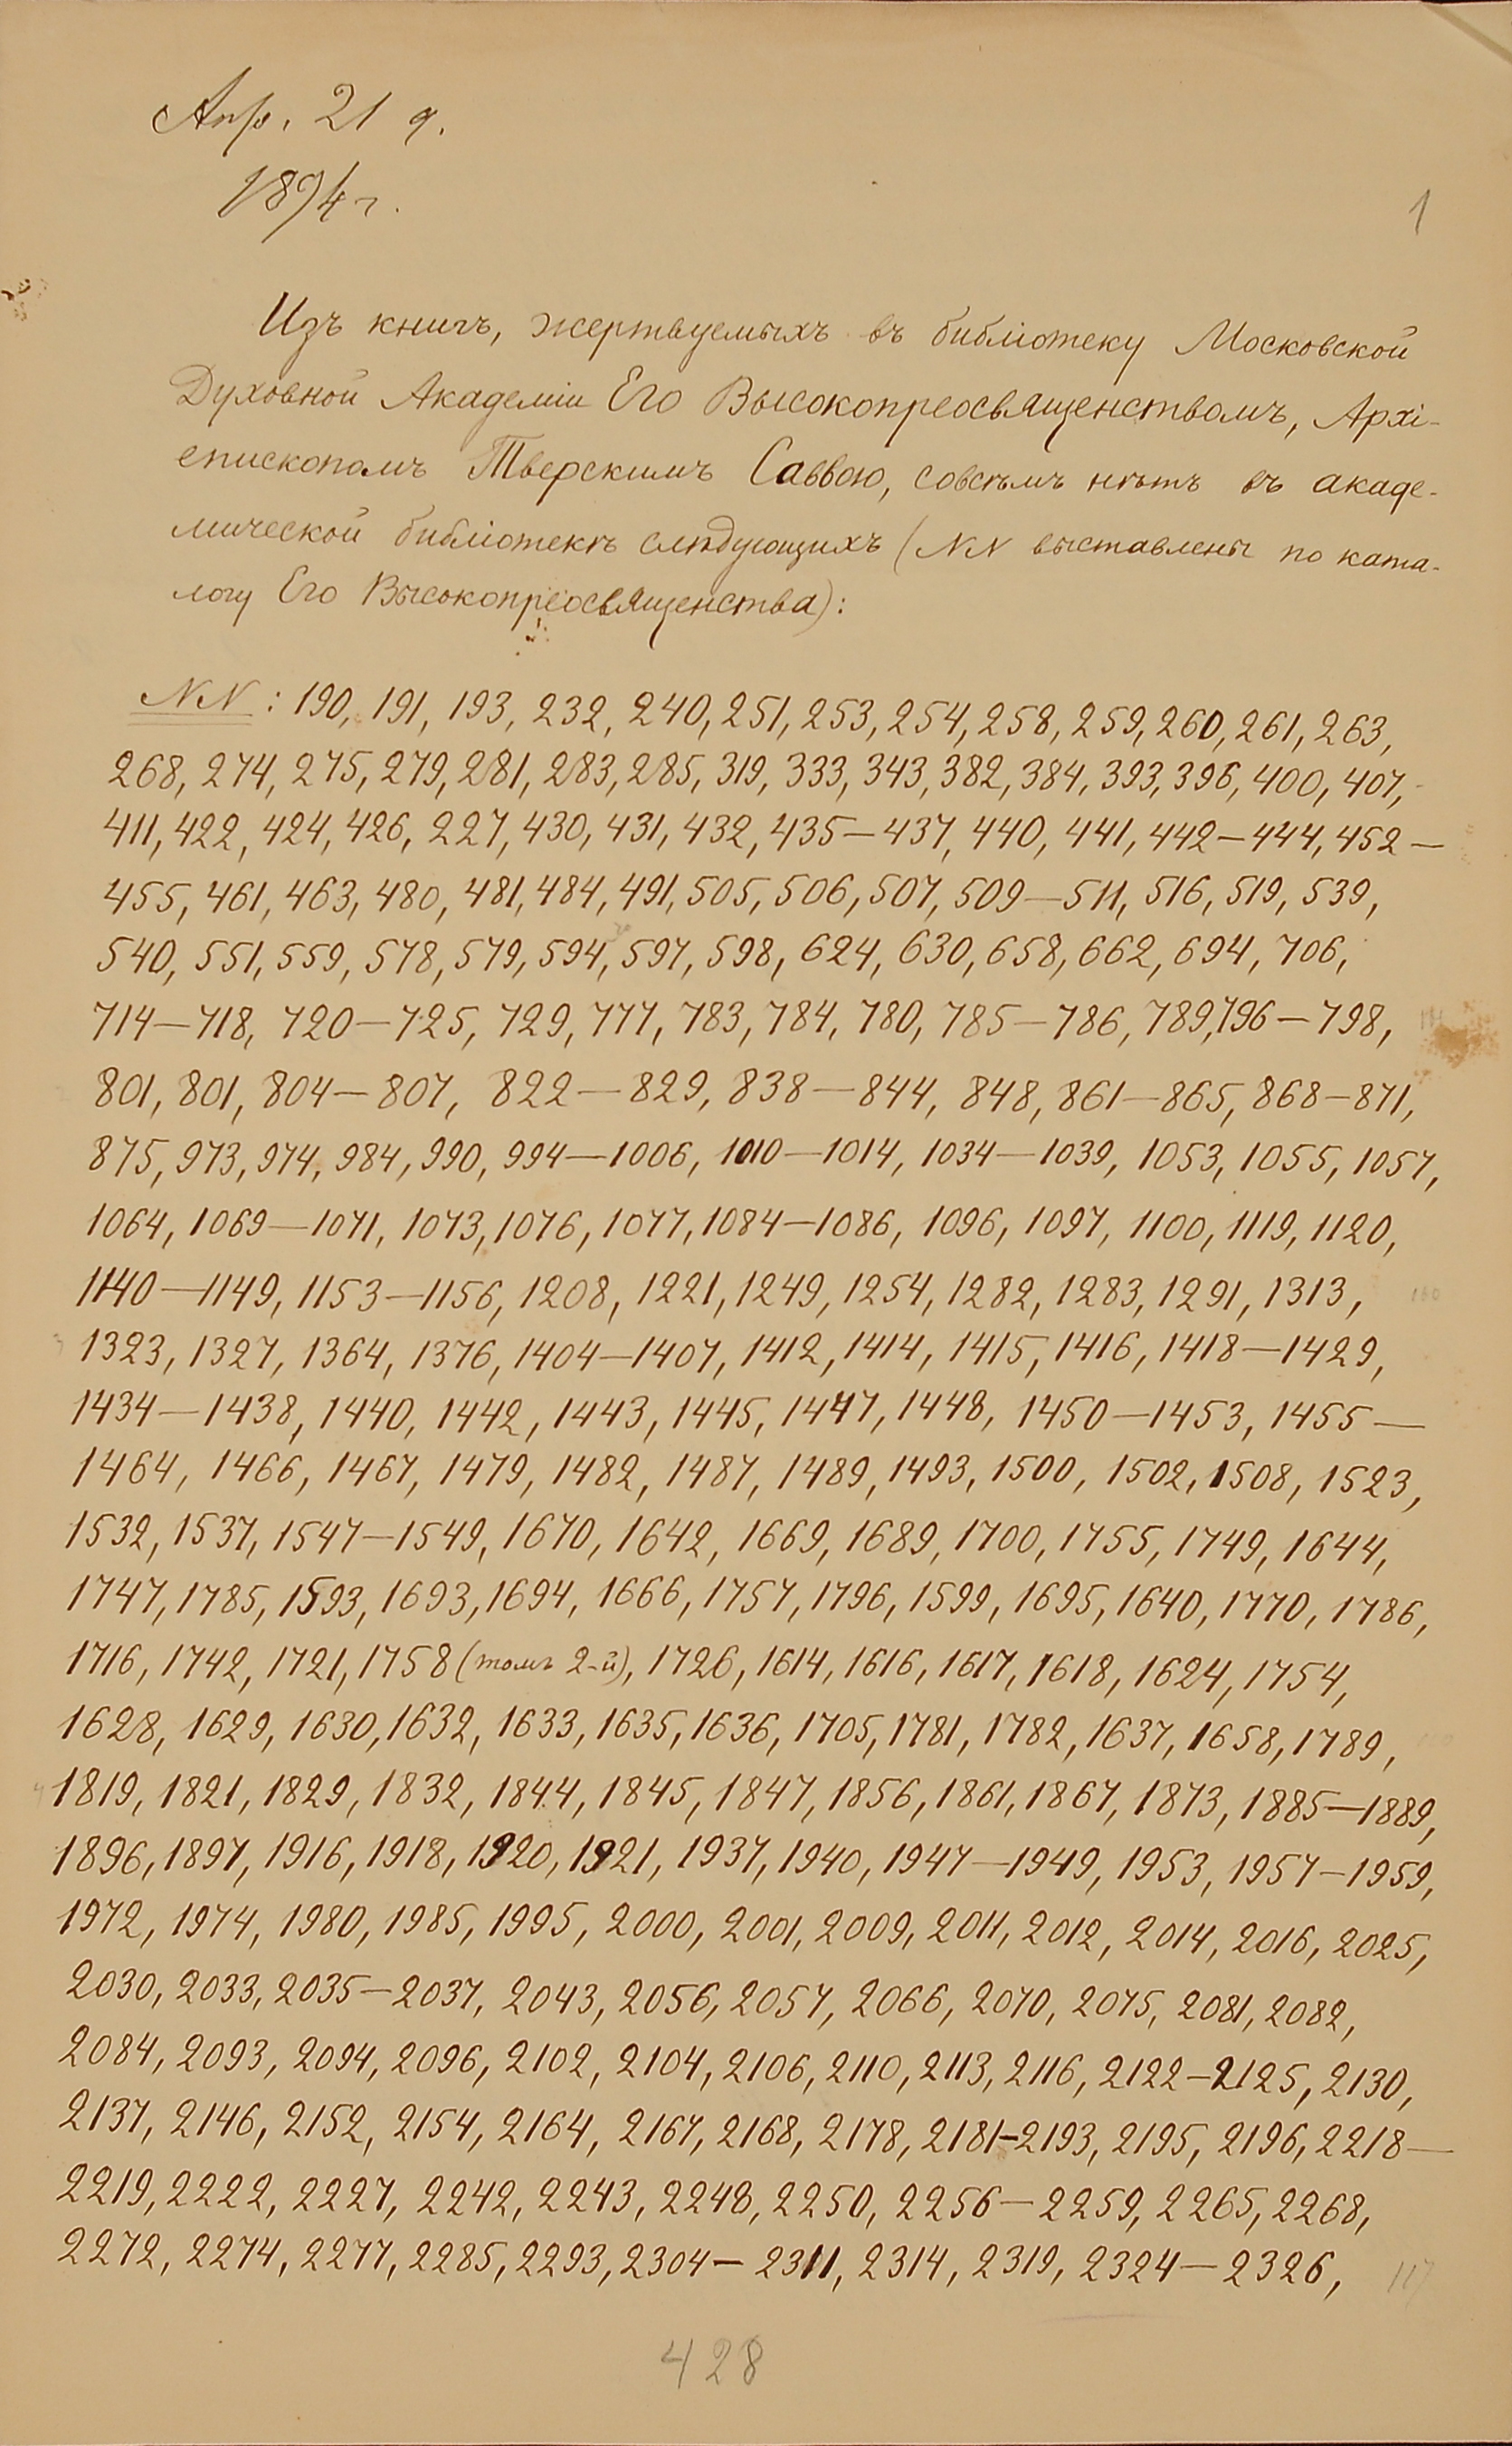 Апр. 21 д.
1894 г.
1
Изъ книгъ, жертвуемыхъ въ библіотеку Московской
Духовной Академіи Его Высокопреосвященствомъ, Архі-
епископомъ Тверскимъ Саввою, совсѣмъ нѣтъ въ акаде-
мической библіотекѣ слѣдующихъ (NN выставлены по ката-
логу Его Высокопреосвященства):
NN: 190, 191, 193, 232, 240, 251, 253, 254, 258, 259, 260, 261, 263,
268, 274, 275, 279, 281, 283, 285, 319, 333, 343, 382, 384, 393, 396, 400, 407,
411, 422, 424, 426, 227, 430, 431, 432, 435—437, 440, 441, 442—444, 452—
455, 461, 463, 480, 481, 484, 491, 505, 506, 507, 509—511, 516, 519, 539,
540, 551, 559, 578, 579, 594, 597, 598, 624, 630, 658, 662, 694, 706,
714—718, 720—725, 729, 777, 783, 784, 780, 785—786, 789, 796—798,
801, 801, 804—807, 822—829, 838—844, 848, 861—865, 868—871,
875, 973, 974, 984, 990, 994—1006, 1010—1014, 1034—1039, 1053, 1055, 1057,
1064, 1069—1071, 1073, 1076, 1077, 1084—1086, 1096, 1097, 1100, 1119, 1120,
1140—1149, 1153—1156, 1208, 1221, 1249, 1254, 1282, 1283, 1291, 1313,
1323, 1327, 1364, 1376, 1404—1407, 1412, 1414, 1415, 1416, 1418—1429,
1434—1438, 1440, 1442, 1443, 1445, 1447, 1448, 1450—1453, 1455—
1464, 1466, 1467, 1479, 1482, 1487, 1489, 1493, 1500, 1502, 1508, 1523,
1532, 1537, 1547—1549, 1670, 1642, 1669, 1689, 1700, 1755, 1749, 1644,
1747, 1785, 1593, 1693, 1694, 1666, 1757, 1796, 1599, 1695, 1640, 1770, 1786,
1716, 1742, 1721, 1758 (томъ 2-й), 1726, 1614, 1616, 1617, 1618, 1624, 1754,
1628, 1629, 1630, 1632, 1633, 1635, 1636, 1705, 1781, 1782, 1637, 1658, 1789,
1819, 1821, 1829, 1832, 1844, 1845, 1847, 1856, 1861, 1867, 1873, 1885—1889,
1896, 1897, 1916, 1918, 1920, 1921, 1937, 1940, 1947—1949, 1953, 1957—1959,
1972, 1974, 1980, 1985, 1995, 2000, 2001, 2009, 2011, 2012, 2014, 2016, 2025,
2030, 2033, 2035—2037, 2043, 2056, 2057, 2066, 2070, 2075, 2081, 2082,
2084, 2093, 2094, 2096, 2102, 2104, 2106, 2110, 2113, 2116, 2122—2125, 2130,
2137, 2146, 2152, 2154, 2164, 2167, 2168, 2178, 2181—2193, 2195, 2196, 2218—
2219, 2222, 2227, 2242, 2243, 2248, 2250, 2256—2259, 2265, 2268,
2272, 2274, 2277, 2285, 2293, 2304—2311, 2314, 2319, 2324—2326,
117
428